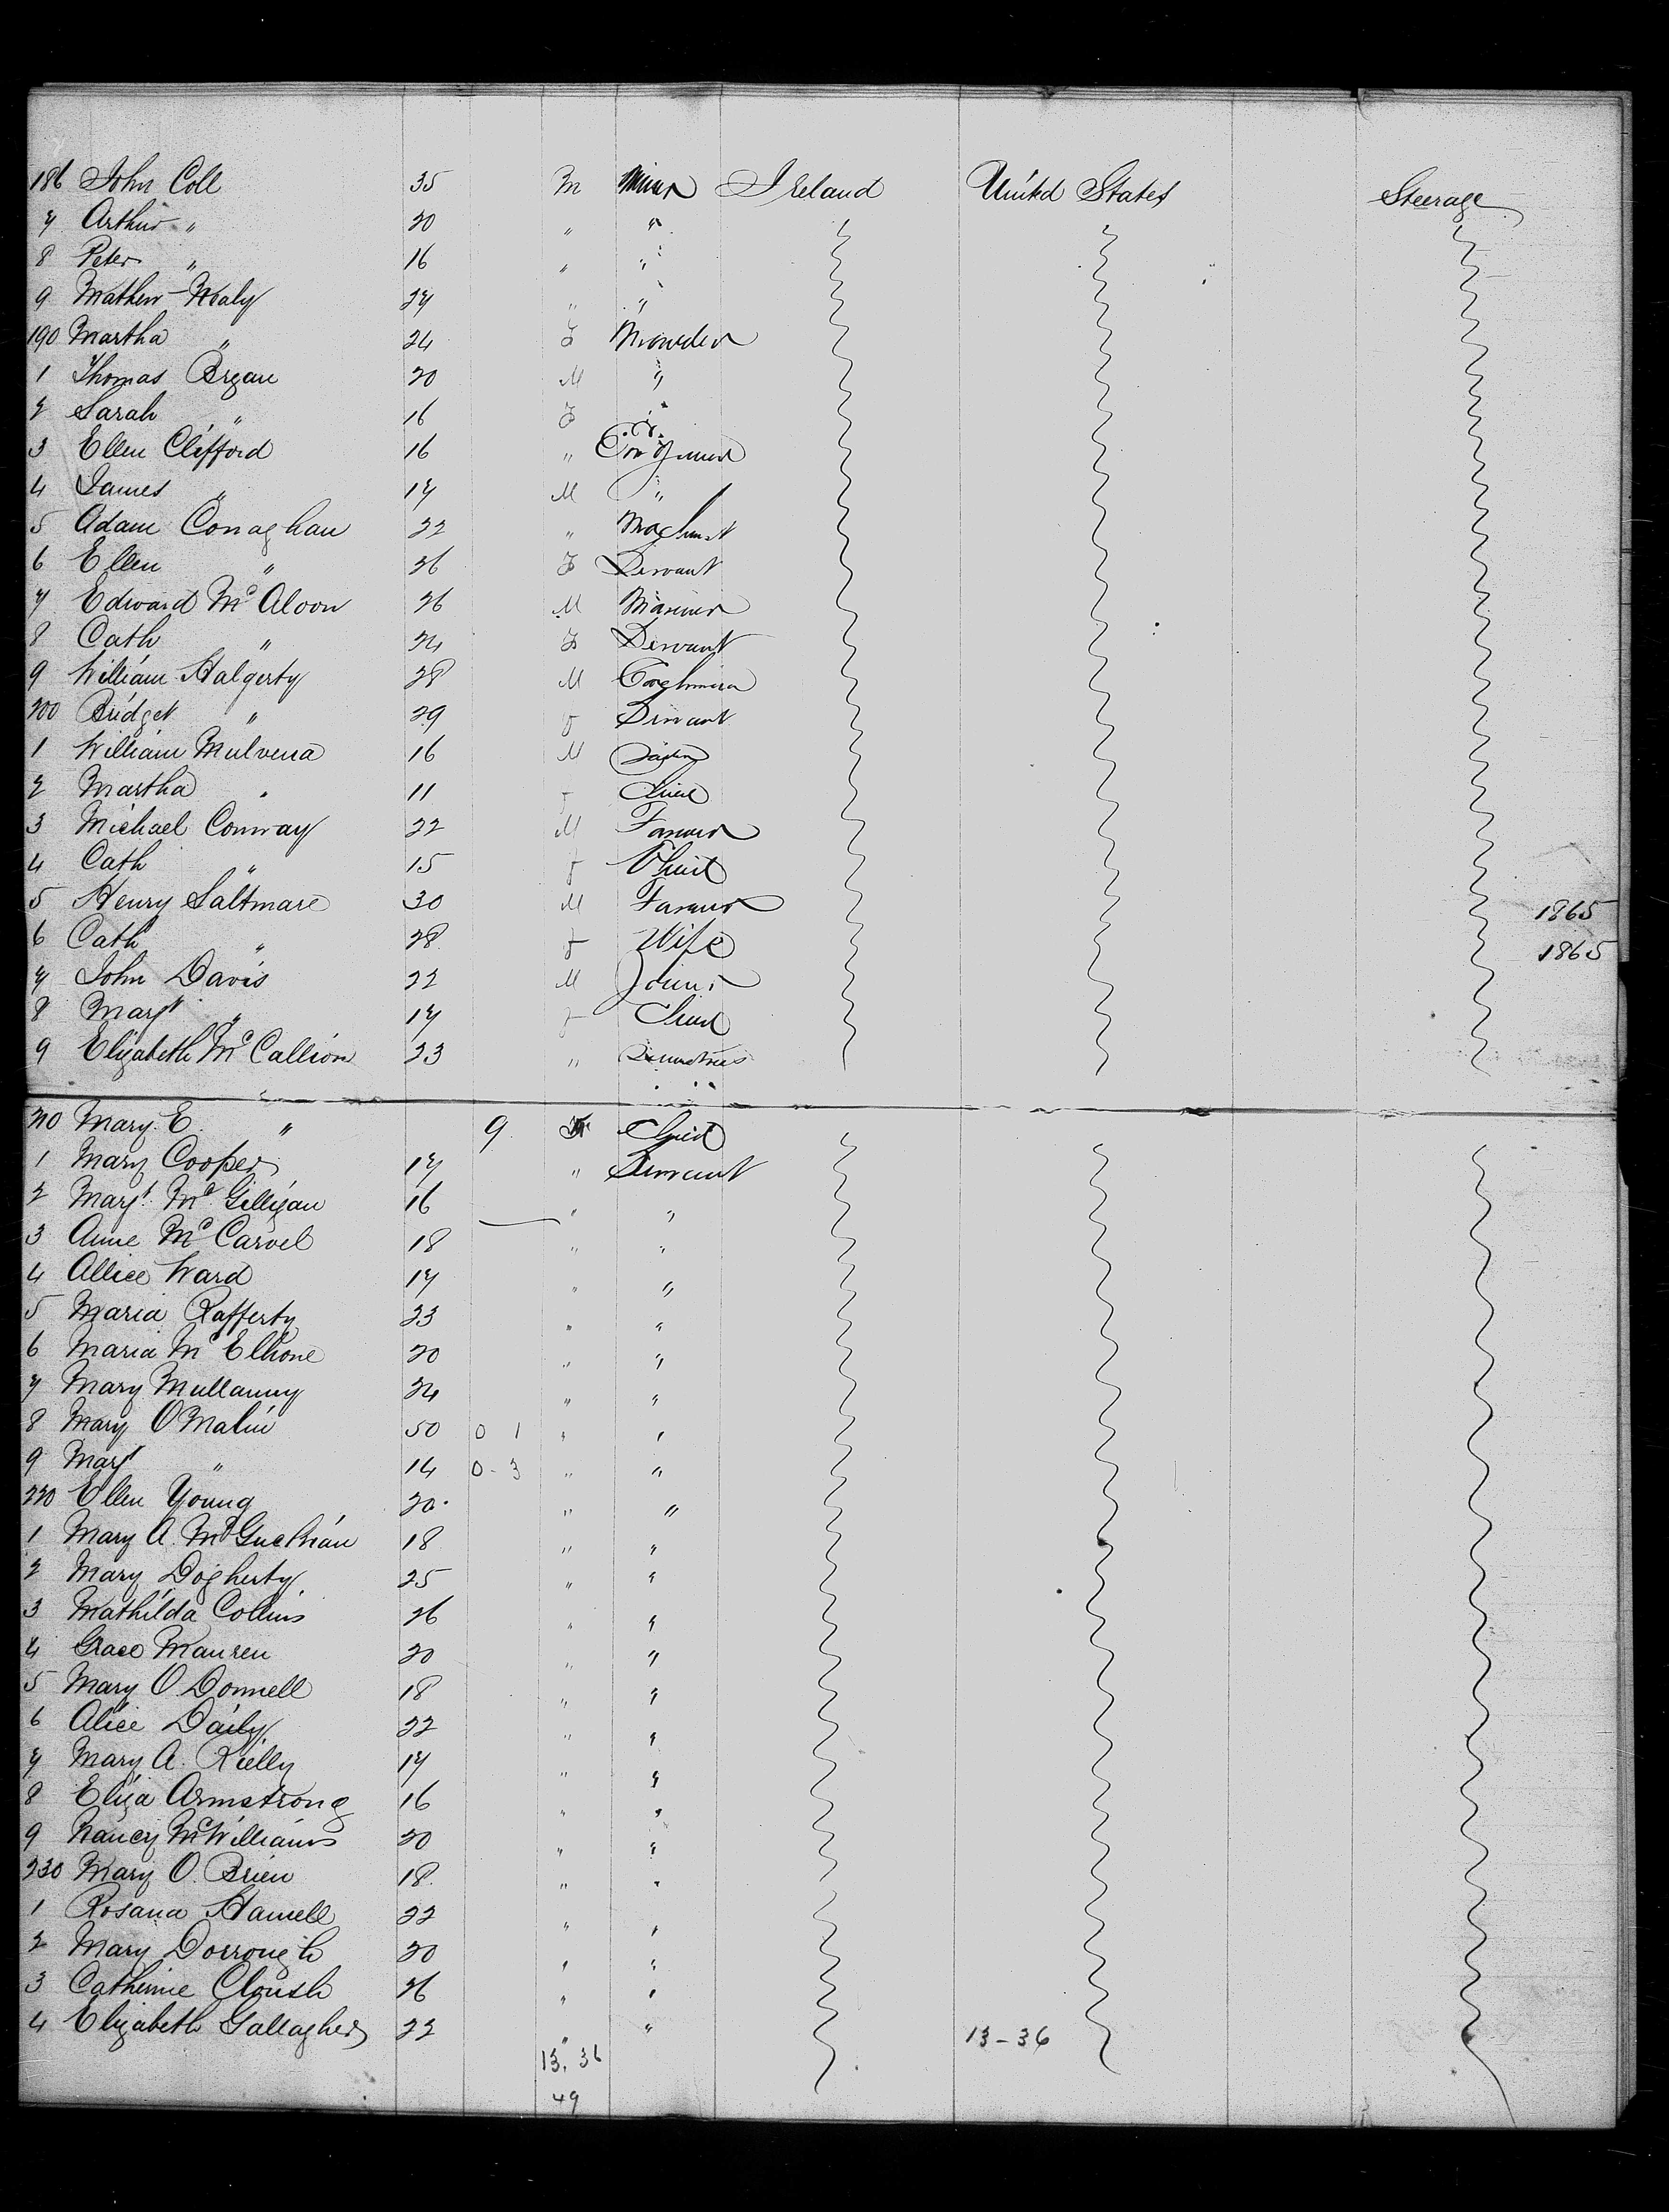 186 John Coll 35 M Miner Ireland United States Steerage
7 Arthur " 20 " "
8 Peter " 16 " "
9 Mathew Healy 27 " "
190 Martha " 24 F
1 Thomas Bregan 20 M "
2 Sarah " 16 F "
3 Ellen Clifford 16 "
4 James " 17 M "
5 Adam Conaghan 22 " Machinist
6 Ellen " 26 F Servant
7 Edward McAloon 26 M Mariner
8 Cath " 24 F Servant
9 William Halgerty 28 M Coachman
200 Bridget " 29 F Servant
1 William Mulvena 16 M
2 Martha " 11 F Child
3 Michael Conway 22 M Farmer
4 Cath " 15 F Child
5 Henry Saltmare 30 M Farmer 1865
6 Cath " 28 F Wife 1865
7 John Davis 22 M Joiner
8 Margt " 17 F Child
9 Elizabeth McCallion 23 " Seamstress
210 Mary E. " 9 F Child
1 Mary Cooper 17 " Servant
2 Margt McGilligan 16 " "
3 Anne McCarvel 18 " "
4 Allice Ward 17 " "
5 Maria Rafferty 23 " "
6 Maria McElhone 20 " "
7 Mary Mullanny 24 " "
8 Mary O Malin 50 0 1 " "
9 Margt " 14 0-3 " "
220 Ellen Young 20 " "
1 Mary A. McGuckian 18 " "
2 Mary Dogherty 25 " "
3 Mathilda Collins 26 " "
4 Grace Mauren 20 " "
5 Mary O Donnell 18 " "
6 Alice Daily 22 " "
7 Mary A. Rielly 17 " "
8 Eliza Armstrong 16 " "
9 Nancy McWilliams 20 " "
230 Mary O. Brien 18 " "
1 Rosana Hamell 22 " "
2 Mary Dorrough 20 " "
3 Catherine Cloush 26 " "
4 Elizabeth Gallagher 22 " " 13-36
13. 36
49